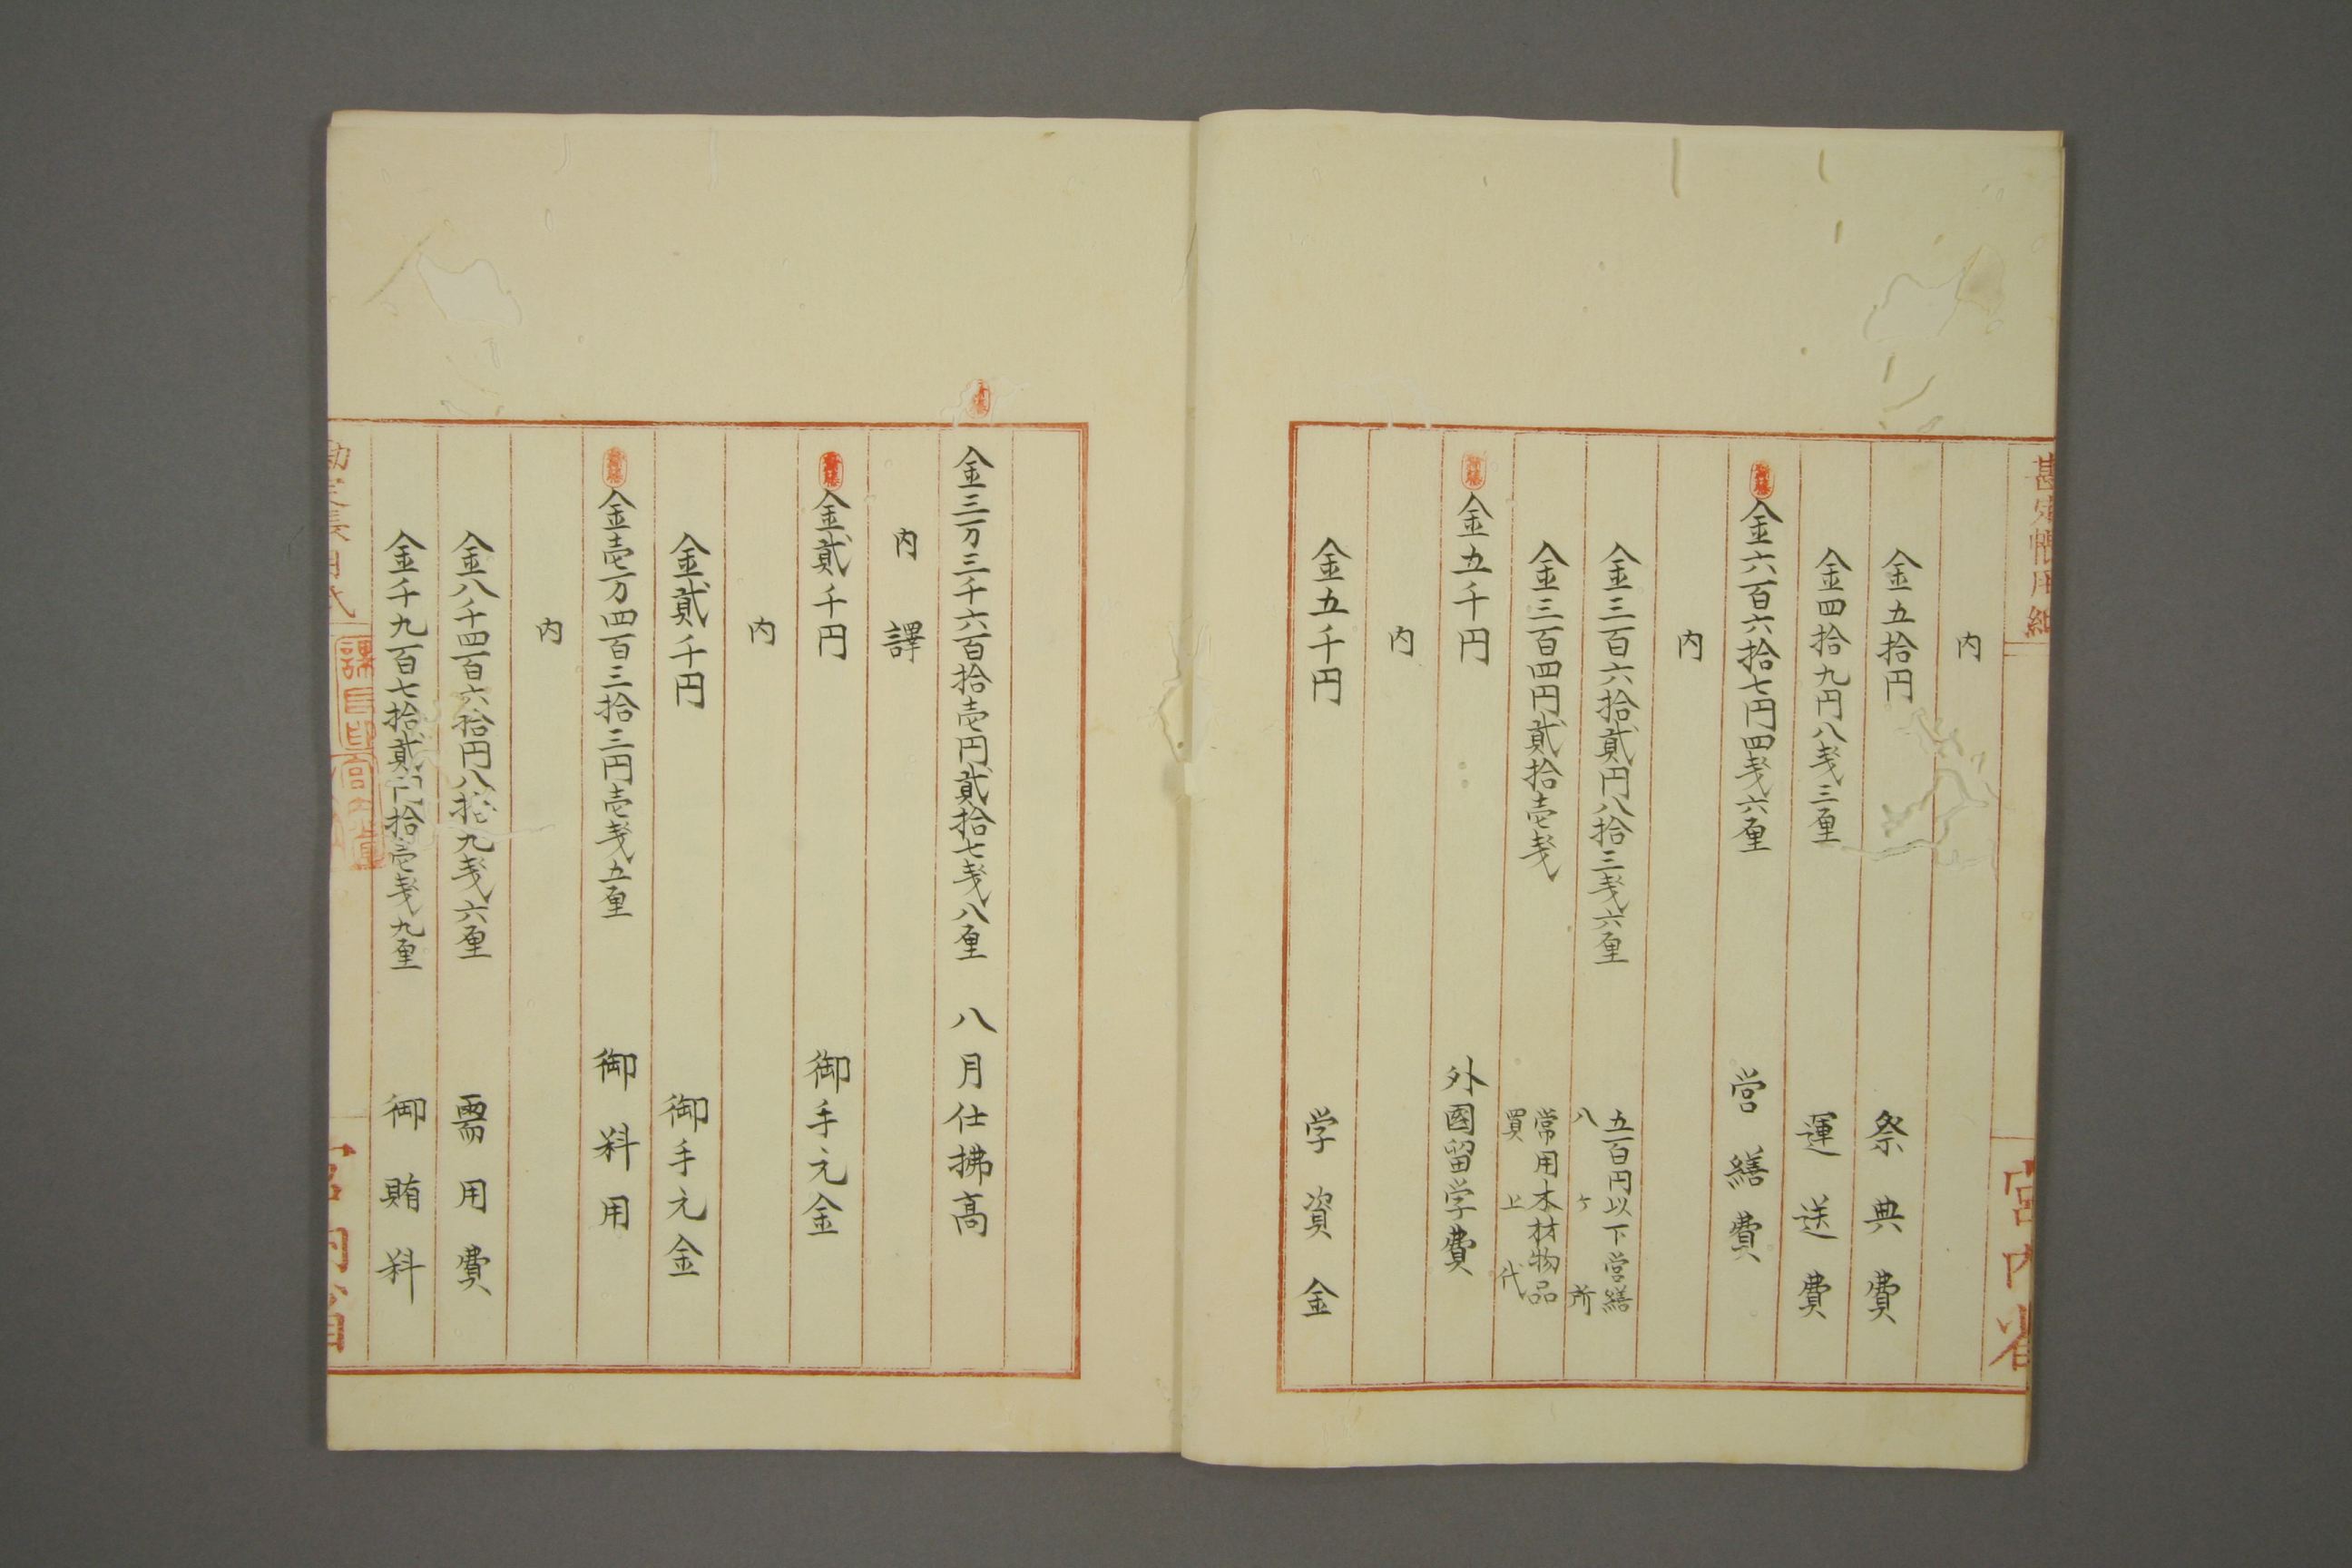 甚定帳用紙
宮内省
内
金五拾円 祭典費
金四拾九円八戋三厘 運送費
金六百六拾七円四戋六厘 営繕費
内
金三百六拾貳円八拾三戋六厘 五百円以下営繕
八ヶ所
金三百四円貳拾壱戋 常用木材物品
買上代
金五千円 外國留学費
内
金五千円 学資金
金三万三千六百拾壱円貳拾七戋八厘 八月仕拂高
内譯
金貳千円 御手元金
内
金貳千円 御手元金
金壱万四百三拾三円壱戋五厘 御料用
内
金八千四百六拾円八拾九戋六厘 需用費
金千九百七拾貳円拾壱戋九厘 御賄料
課長印
宮内省